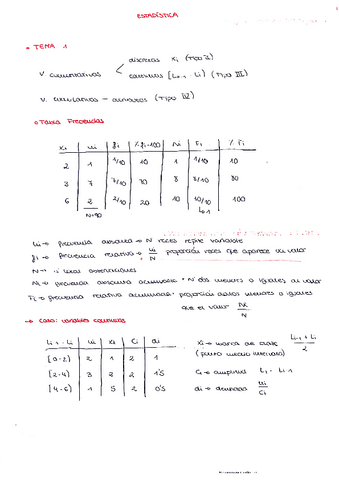 ESTADÍSTICA
• TEMA 1
discretas xi (Tipo I)
V. cuantitativas < continuas [Li-1 - Li) (Tipo III)
V. cualitativas =
(Tipo IV)
• Tabla Frecuencias
xi | ni | fi | %fi·100 | Ni | Fi | % Fi
2 | 1 | 1/10 | 10 | 1 | 1/10 | 10
3 | 7 | 7/10 | | 8 | 8/10 | 80
6 | | 2/10 | 20 | 10 | 10/10 | 100
N=10
ni → frecuencia absoluta → N veces repite variable
fi → frecuencia relativa → ni/N proporción veces que aparece un valor
N → total observaciones
Ni → frecuencia absoluta acumulada → Nº datos menores o iguales al valor
Fi → frecuencia relativa acumulada → proporción datos menores o iguales
que el valor Ni/N
→ Caso: variables continuas
Li-1 - Li | ni | xi | Ci | di
[0-2) | 2 | 1 | 2 | 1
[2-4) | 3 | | 2 | 1'5
[4-6) | 1 | 5 | 2 | 0'5
xi → marca de clase Li-1 + Li / 2
(punto medio intervalo)
Ci → amplitud Li - Li-1
di → densidad ni/Ci